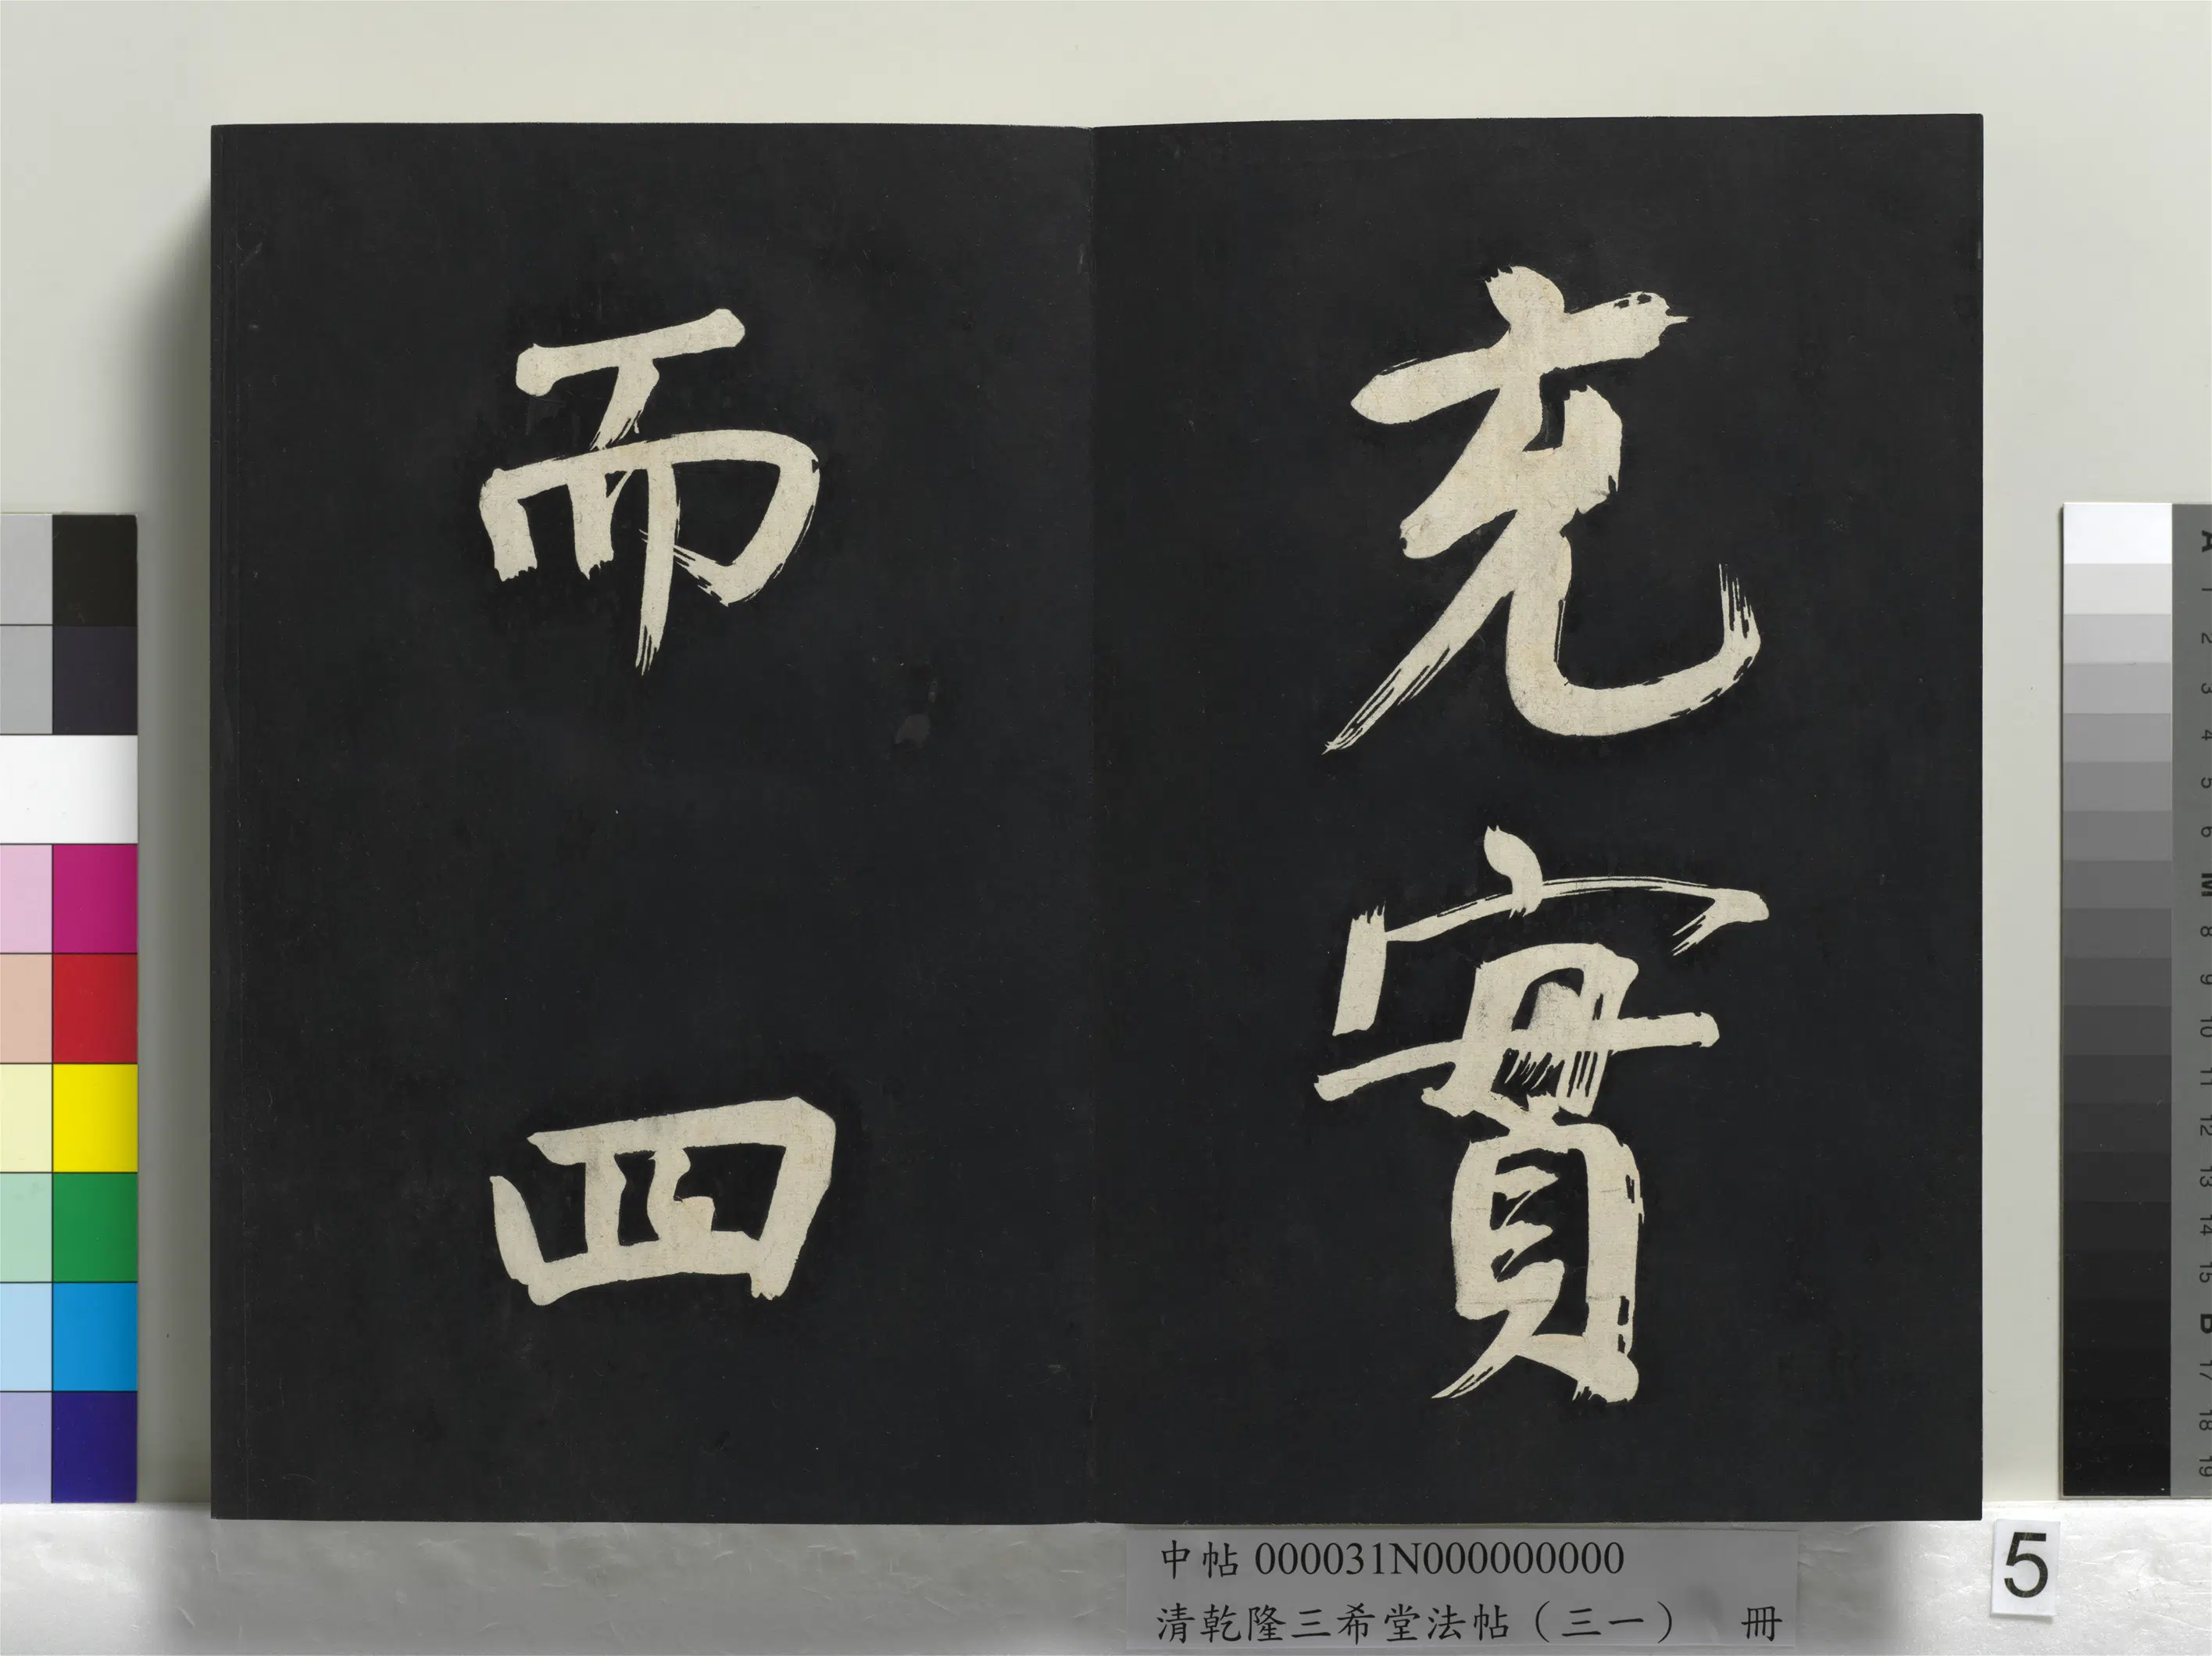 充實
而四
中帖 000031N000000000
清乾隆三希堂法帖（三一） 冊
5
A
1
2
3
4
5
6
M
8
9
10
11
12
13
14
15
B
17
18
19